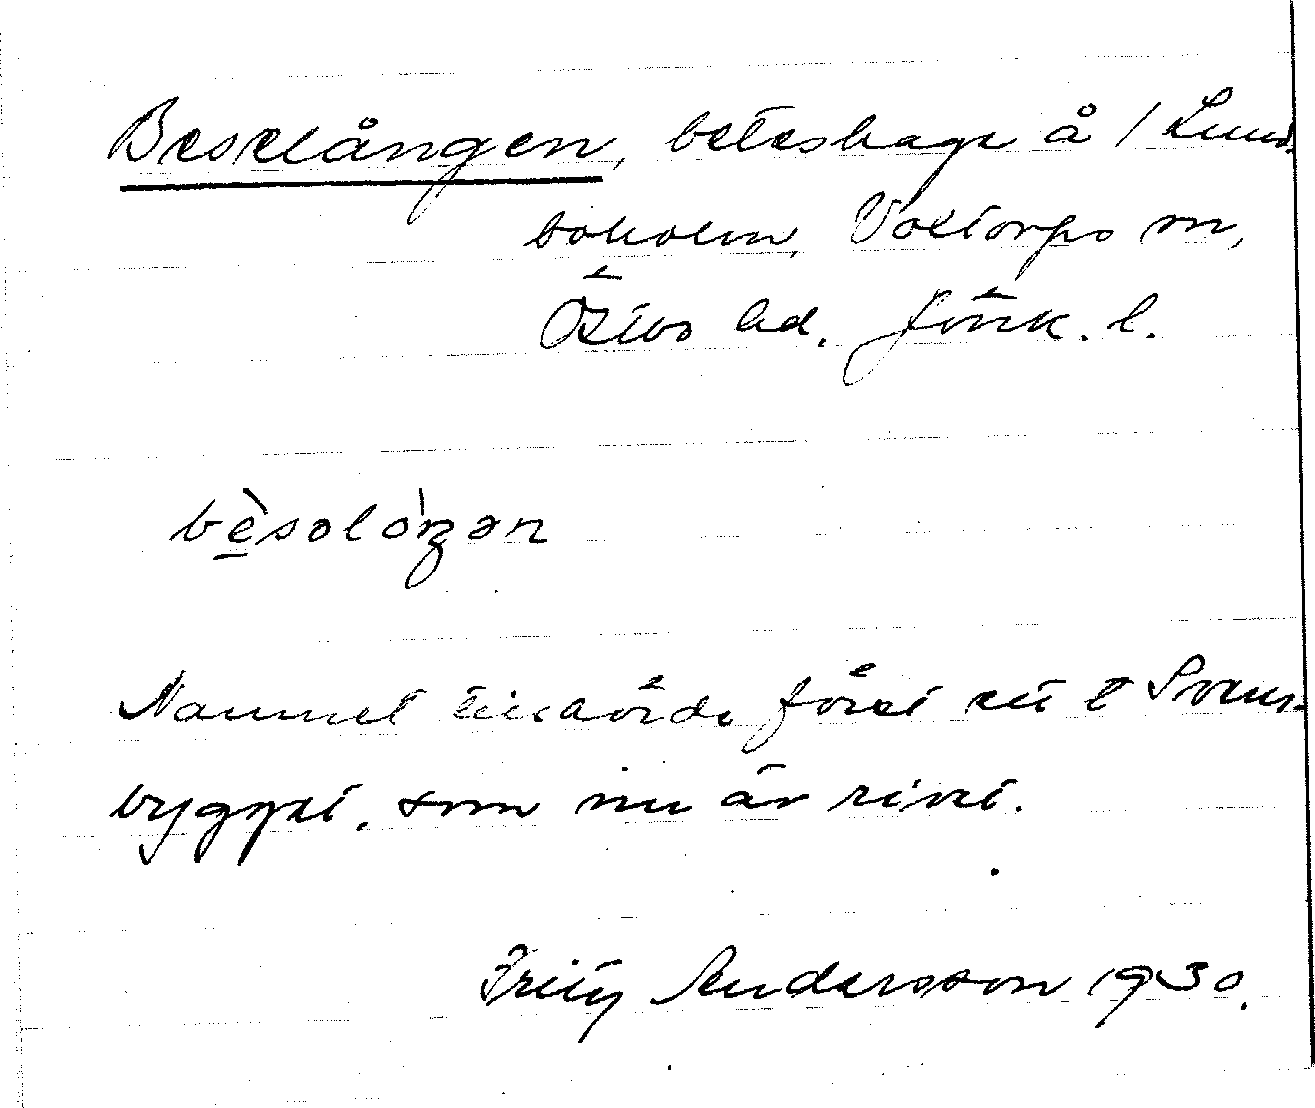 Beselången, beteshage å / Lund-
boholm, Voxtorps sn,
Östbo hd. Jönk. l.
bèsəlóŋən
Namnet tillhörde först ett t Svens-
bygget, som nu är rivet.
Fritz Andersson 1930.